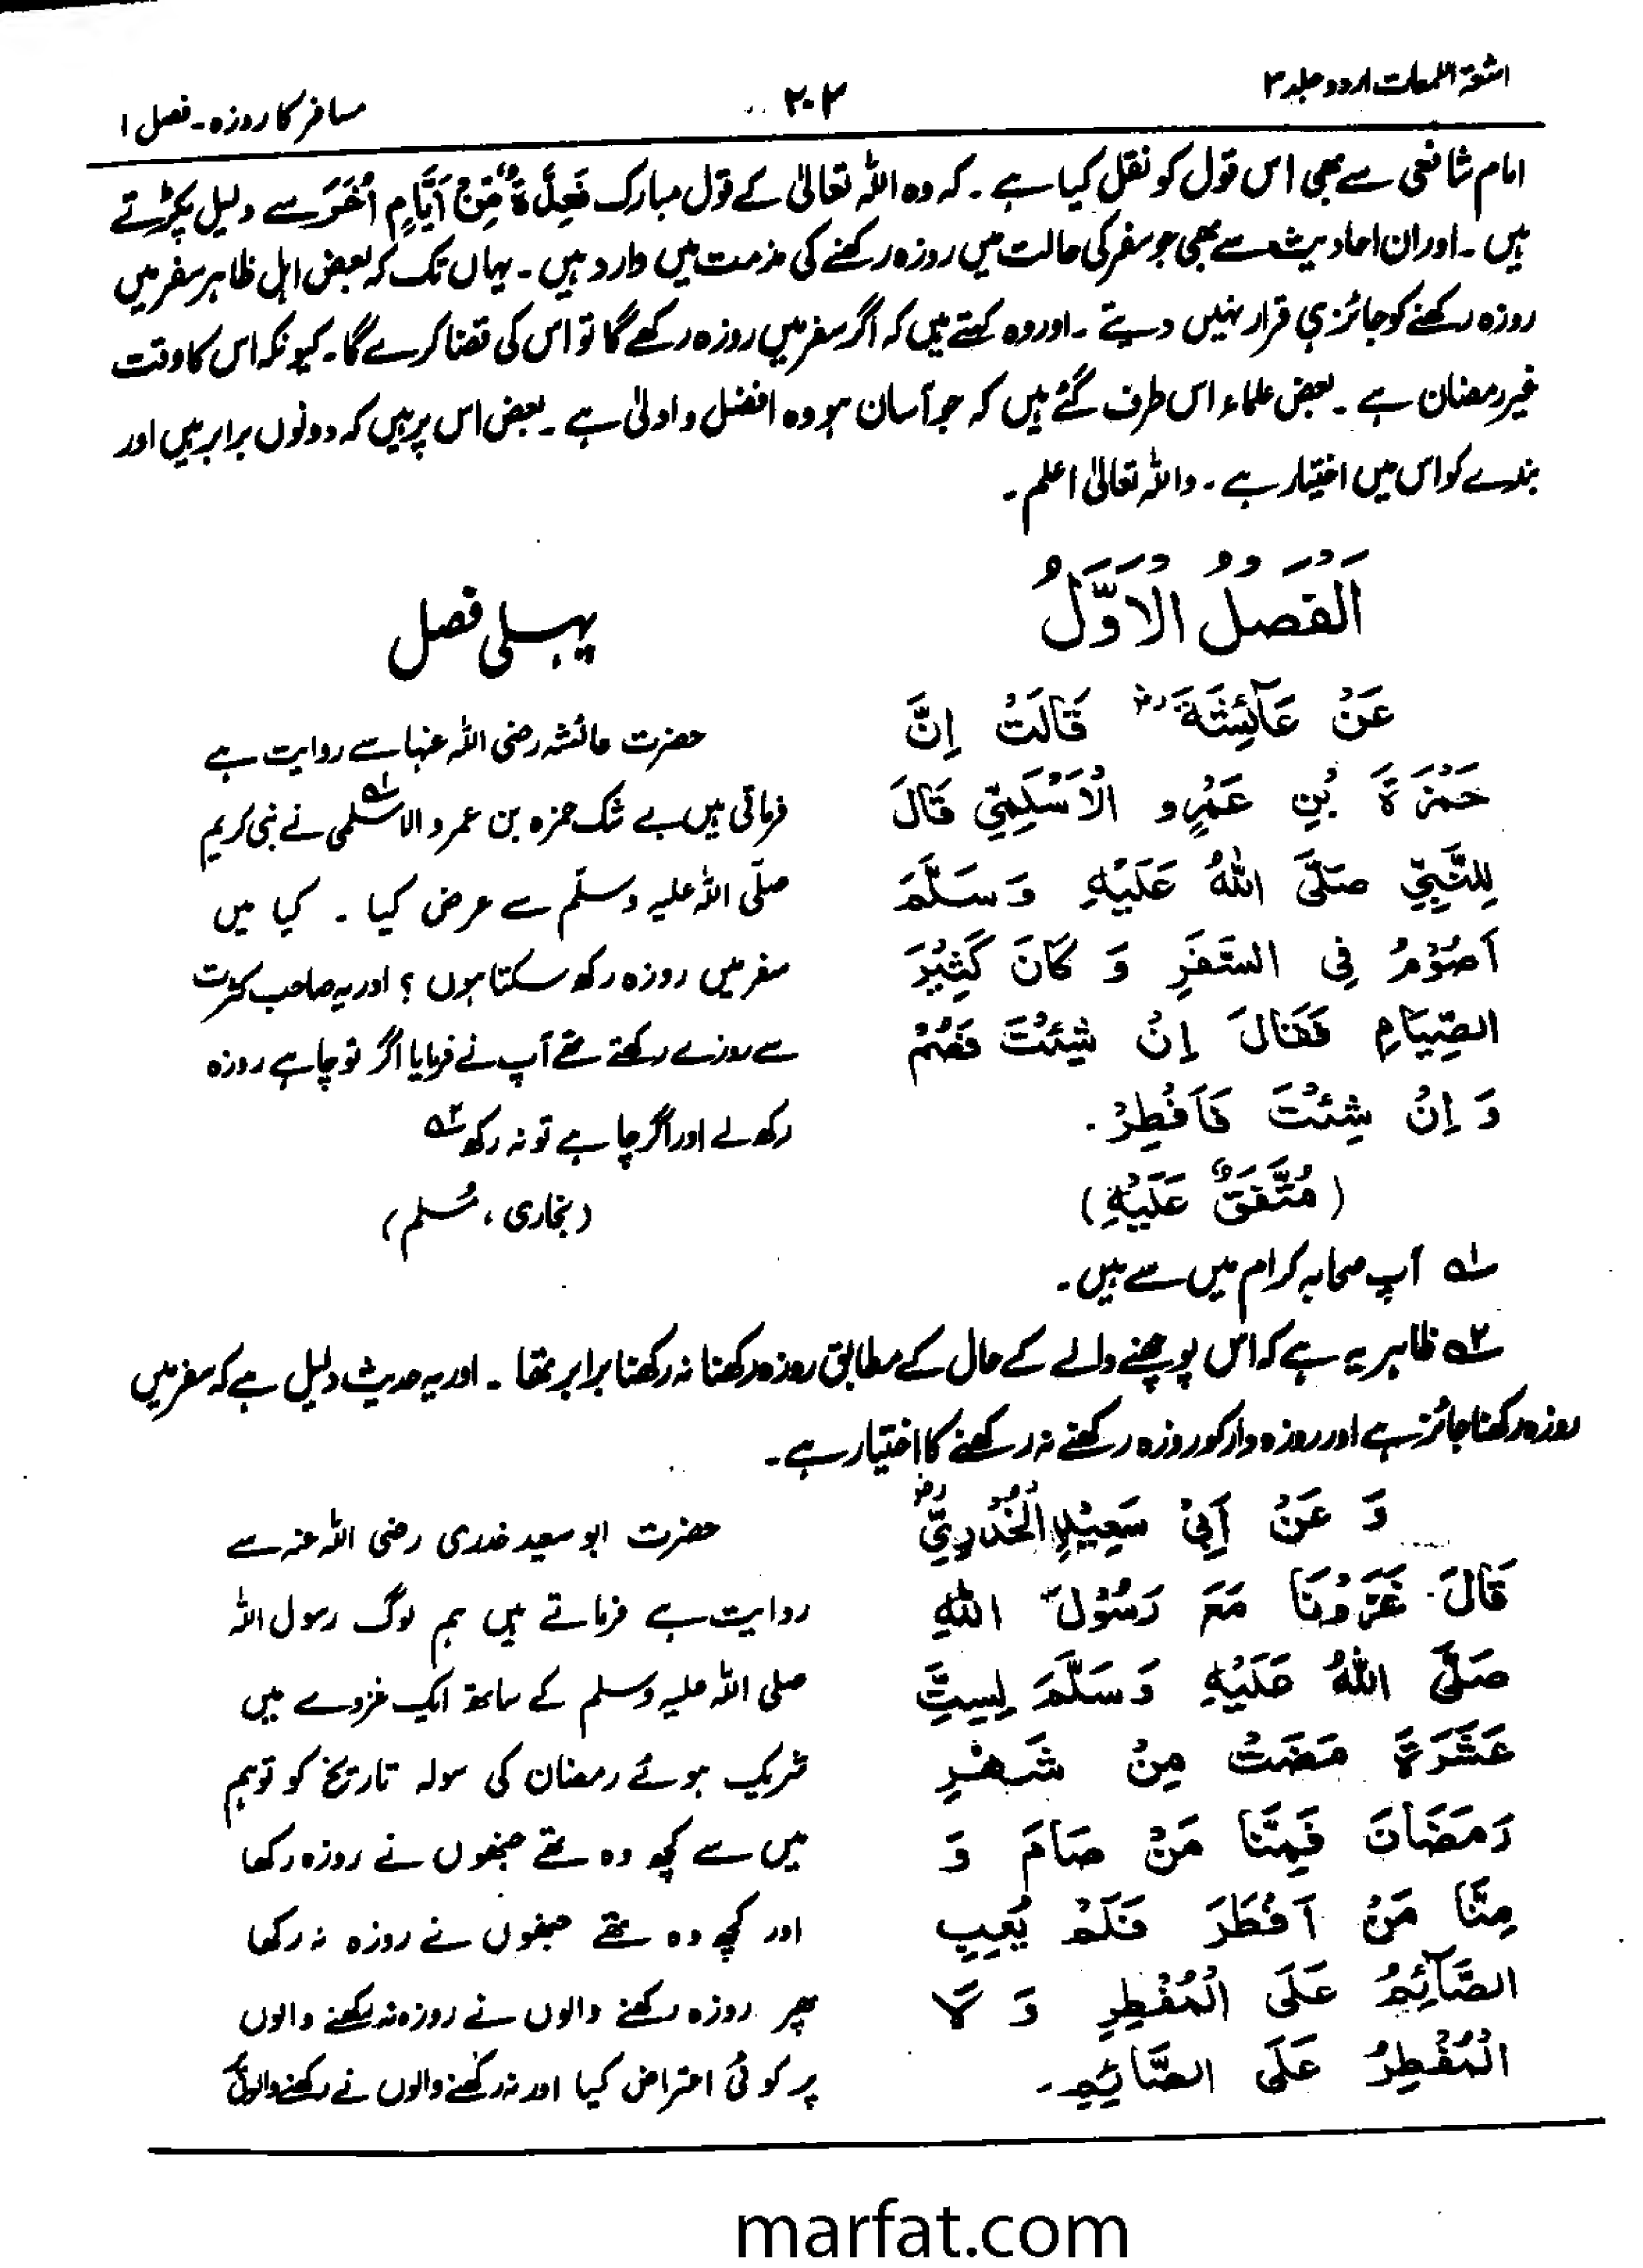 اشعۃ اللمعات اردو جلد ۳
۲۰۲
مسافر کا روزہ۔ فصل ۱
امام شافعی سے بھی اس قول کو نقل کیا ہے۔ کہ وہ اللہ تعالیٰ کے قول مبارک فَعِدَّةٌ مِّنْ اَیَّامٍ اُخَرَ سے دلیل پکڑتے
ہیں۔ اور ان احادیث سے بھی جو سفر کی حالت میں روزہ رکھنے کی مذمت میں وارد ہیں۔ یہاں تک کہ بعض اہل ظاہر سفر میں
روزہ رکھنے کو جائز ہی قرار نہیں دیتے۔ اور وہ کہتے ہیں کہ اگر سفر میں روزہ رکھے گا تو اس کی قضا کرے گا۔ کیونکہ اس کا وقت
غیر رمضان ہے۔ بعض علماء اس طرف گئے ہیں کہ جو آسان ہو وہ افضل و اولیٰ ہے۔ بعض اس پر ہیں کہ دونوں برابر ہیں اور
بندے کو اس میں اختیار ہے۔ واللہ تعالیٰ اعلم۔
اَلْفَصْلُ الْاَوَّلُ
عَنْ عَآئِشَةَ رض قَالَتْ اِنَّ
حَمْزَةَ بْنِ عَمْرٍو الْاَسْلَمِیِّ قَالَ
لِلنَّبِیِّ صَلَّی اللّٰهُ عَلَیْهِ وَسَلَّمَ
اَصُوْمُ فِی السَّفَرِ وَ کَانَ کَثِیْرَ
الصِّیَامِ فَقَالَ اِنْ شِئْتَ فَصُمْ
وَ اِنْ شِئْتَ فَاَفْطِرْ.
(مُتَّفَقٌ عَلَیْهِ)
پہلی فصل
حضرت عائشہ رضی اللہ عنہا سے روایت ہے
فرماتی ہیں بے شک حمزہ بن عمرو الاسلمی ؎۱ نے نبی کریم
صلّی اللہ علیہ وسلّم سے عرض کیا ۔ کیا میں
سفر میں روزہ رکھ سکتا ہوں ؟ اور یہ صاحب کثرت
سے روزے رکھتے تھے آپ نے فرمایا اگر تو چاہے روزہ
رکھ لے اور اگر چاہے تو نہ رکھ ؎۲
(بخاری ، مُسلم)
؎۱ آپ صحابہ کرام میں سے ہیں۔
؎۲ ظاہر یہ ہے کہ اس پوچھنے والے کے حال کے مطابق روزہ رکھنا نہ رکھنا برابر تھا ۔ اور یہ حدیث دلیل ہے کہ سفر میں
روزہ رکھنا جائز ہے اور روزہ دار کو روزہ رکھنے نہ رکھنے کا اختیار ہے۔
وَ عَنْ اَبِیْ سَعِیْدِ الْخُدْرِیِّ رض
قَالَ غَزَوْنَا مَعَ رَسُوْلِ اللّٰهِ
صَلَّی اللّٰهُ عَلَیْهِ وَسَلَّمَ لِسِتِّ
عَشَرَةَ مَضَتْ مِنْ شَهْرِ
رَمَضَانَ فَمِنَّا مَنْ صَامَ وَ
مِنَّا مَنْ اَفْطَرَ فَلَمْ یَعِبِ
الصَّآئِمُ عَلَی الْمُفْطِرِ وَ لَا
الْمُفْطِرُ عَلَی الصَّائِمِ۔
حضرت ابو سعید خدری رضی اللہ عنہ سے
روایت ہے فرماتے ہیں ہم لوگ رسول اللہ
صلی اللہ علیہ وسلم کے ساتھ ایک غزوے میں
شریک ہوئے رمضان کی سولہ تاریخ کو تو ہم
میں سے کچھ وہ تھے جنھوں نے روزہ رکھا
اور کچھ وہ تھے جنھوں نے روزہ نہ رکھا
پھر روزہ رکھنے والوں نے روزہ نہ رکھنے والوں
پر کوئی اعتراض کیا اور نہ رکھنے والوں نے رکھنے والوں
marfat.com